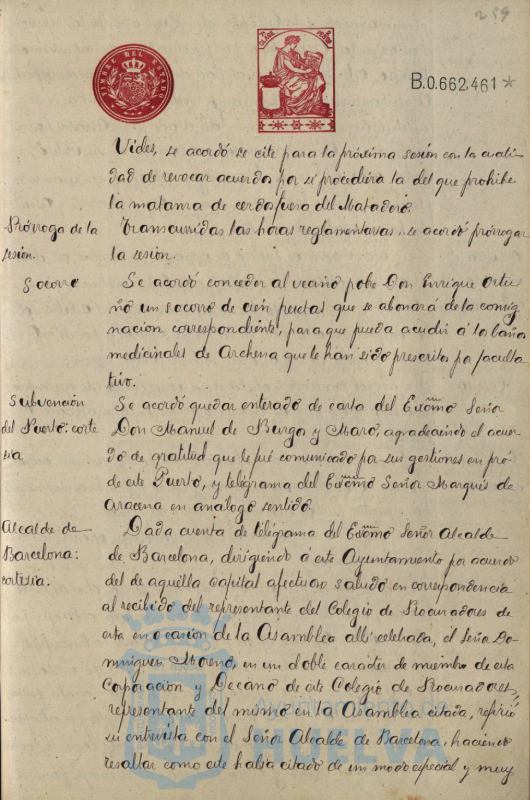 259
TIMBRE DEL ESTADO
B.0.662.461*
Vides, se acordó se cite para la próxima sesión con la cuali
dad de revocar acuerdos por si procediera la del que prohibe
la matanza de cerdos fuera del Matadero.
Prórroga de la
sesión.
Transcurridas las horas reglamentarias, se acordó prorrogar
la sesión.
Socorro
Se acordó conceder al vecino pobre Don Enrique Ortu
ño un socorro de cien pesetas que se abonará de la consig
nacion correspondiente, para que pueda acudir á los baños
medicinales de Archena que le han sido prescritos por faculta
tivo.
Subvención
del Puerto: corte
sía
Se acordó quedar enterado de carta del Excmo Señor
Don Manuel de Burgos y Mazo, agradeciendo el acuer
do de gratitud que le fué comunicado por sus gestiones en pró
de este Puerto, y telégrama del Excmo Señor Marqués de
Aracena en análogo sentido.
Alcalde de
Barcelona:
cortesía.
Dada cuenta de telégrama del Excmo Señor Alcalde
de Barcelona, dirigiendo á este Ayuntamiento por acuerdo
del de aquella capital afectuoso saludo en correspondencia
al recibido del representante del Colegio de Procuradores de
esta en ocasión de la Asamblea allí celebrada, el Señor Do-
minguez Moreno, en su doble carácter de miembro de esta
Corporación y Decano de este Colegio de Procuradores,
representante del mismo en la Asamblea citada, refirió
su entrevista con el Señor Alcalde de Barcelona, haciendo
resaltar como este habia citado de un modo especial y muy
HUELVA